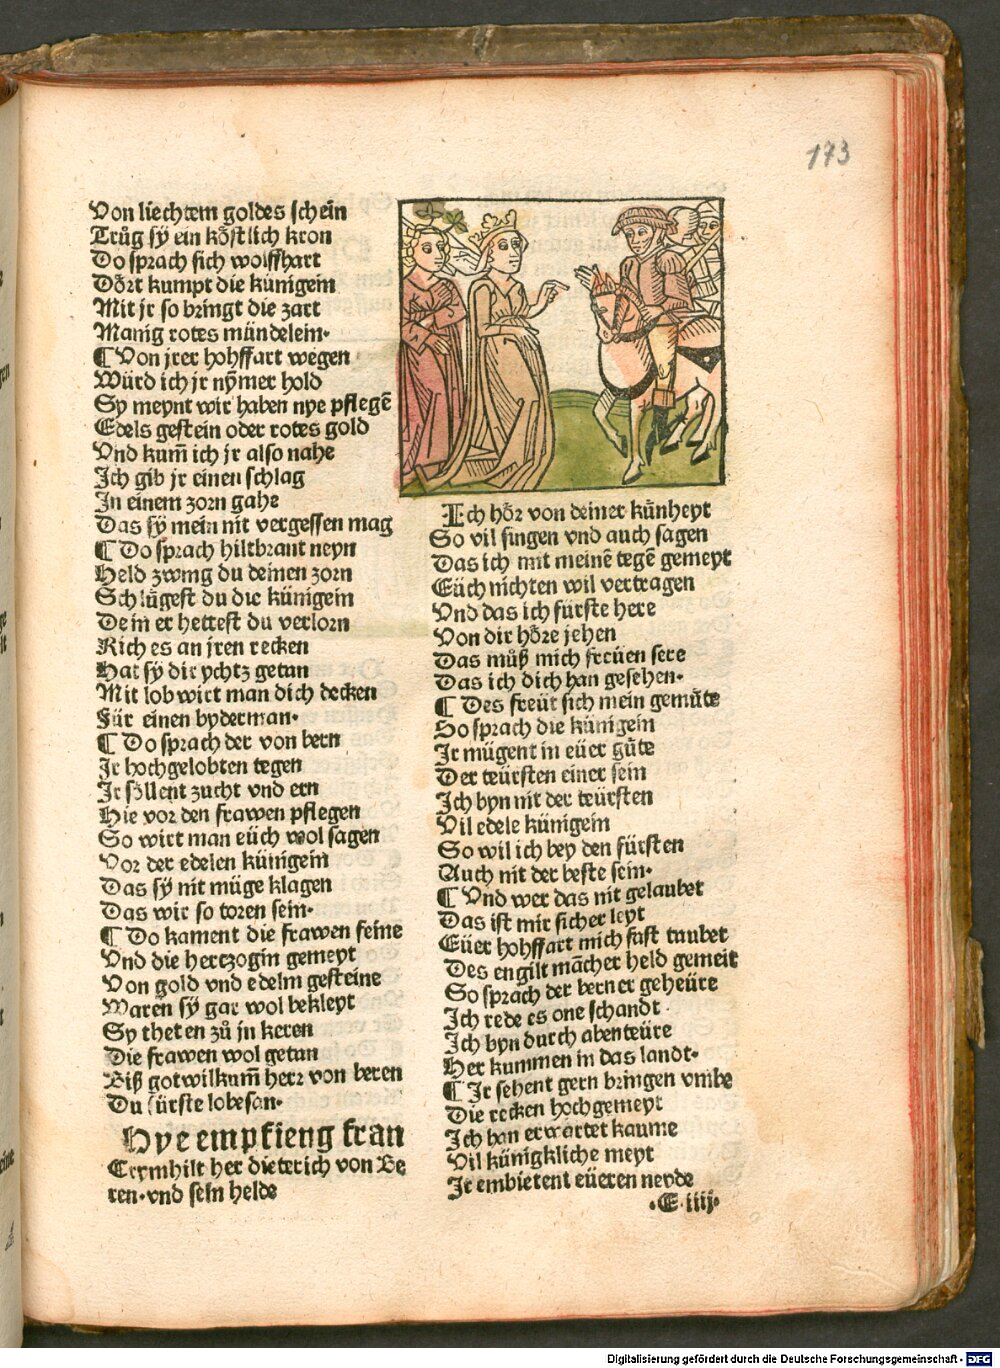 173
Von liechtem goldes schein
Trůg sy ein kőstlich kron
Do sprach sich wolffhart
Dőrt kumpt die künigein
Mit jr so bringt die zart
Manig rotes mündelein·
¶ Von jrer hohffart wegen
Würd ich jr nÿmer hold
Sy meynt wir haben nye pflegē
Edels gestein oder rotes gold
Vnd kum̄ ich jr also nahe
Ich gib jr einen schlag
In einem zorn gahe
Das sÿ mein nit vergessen mag
¶ Do sprach hiltbrant neyn
Held zwing du deinen zorn
Schlügest du die künigein
Dein er hettest du verlorn
Rich es an jren recken
Hat sÿ dir ychtz getan
Mit lob wirt man dich decken
Für einen byderman·
¶ Do sprach der von bern
Ir hochgelobten tegen
Ir sőllent zucht vnd ern
Hie vor den frawen pflegen
So wirt man eüch wol sagen
Vor der edelen künigein
Das sÿ nit müge klagen
Das wir so toren sein·
¶ Do kament die frawen feine
Vnd die hertzogin gemeyt
Von gold vnd edelm gesteine
Waren sÿ gar wol bekleyt
Sy theten zů jn keren
Die frawen wol getan
Biß gotwilkum̄ herr von beren
Du fürste lobesan·
Hye empfieng fran
Crymhilt her dieterich von Be
ren·vnd sein helde
Ich hőr von deiner künheyt
So vil singen vnd auch sagen
Das ich mit meinē tegē gemeyt
Eüch nichten wil vertragen
Vnd das ich fürste here
Von dir hőre jehen
Das můß mich freüen sere
Das ich dich han gesehen·
¶ Des freüt sich mein gemůte
So sprach die künigein
Ir mügent in eüer gůte
Der teürsten einer sein
Ich byn nit der teürsten
Vil edele künigein
So wil ich bey den fürsten
Auch nit der beste sein·
¶ Vnd wer das nit gelaubet
Das ist mir sicher leyt
Eüer hohffart mich fast taubet
Des engilt mācher held gemeit
So sprach der berner geheüre
Ich rede es one schandt
Ich byn durch abenteüre
Her kummen in das landt·
¶ Ir sehent gern bringen vmbe
Die recken hochgemeyt
Ich han erwartet kaume
Vil künigkliche meyt
Ir embietent eüeren neyde
·E iiij·
Digitalisierung gefördert durch die Deutsche Forschungsgemeinschaft - DFG